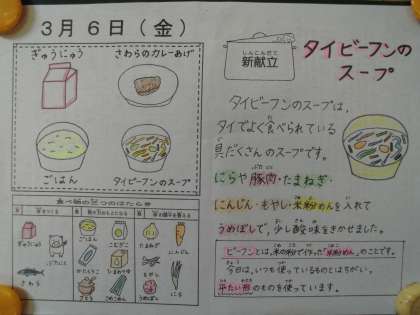 3月6日(金)
ぎゅうにゅう
さわらのカレーあげ
ごはん
タイビーフンのスープ
しんこんだて
新献立
タイビーフンの
スープ
タイビーフンのスープは、
タイでよく食べられている
具だくさんのスープです。
にらや豚肉・たまねぎ・
にんじん・もやし・米粉めんを入れて
うめぼしで、少し酸味をきかせました。
ビーフンとは、米の粉で作った「米粉めん」のことです。
今日は、いつも使っているものとはちがい、
平たい形のものを使っています。
食べ物の三つのはたらき
ぎゅうにゅう
ぶたにく
さわら
ごはん
こむぎこ
かたくりこ
さとう
こめこめん
たまねぎ
にんじん
もやし
にら
うめぼし